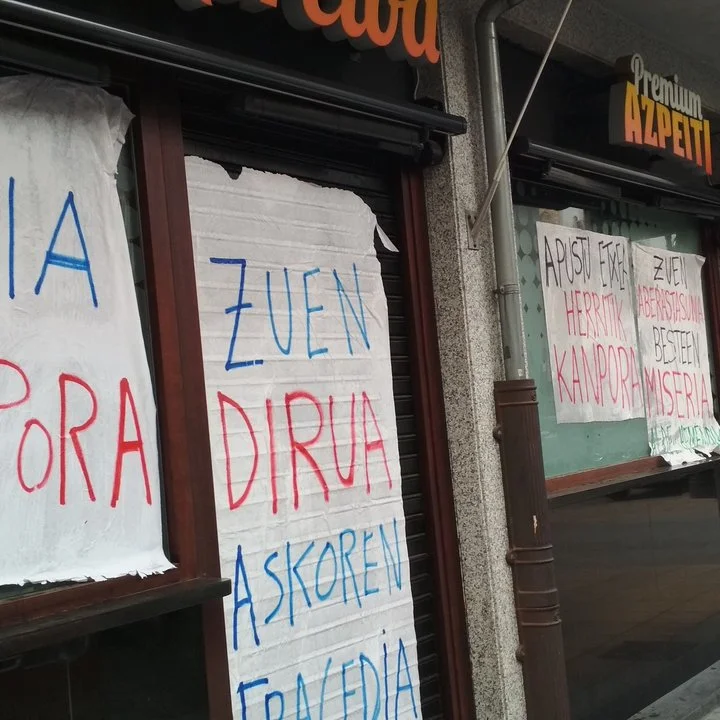 IA
PORA
ZUEN
DIRUA
ASKOREN
TRAGEDIA
Premium
AZPEITI
APUSTU ETXEA
HERRITIK
KANPORA
ZUEN
ABERASTASUNA
BESTEEN
MISERIA